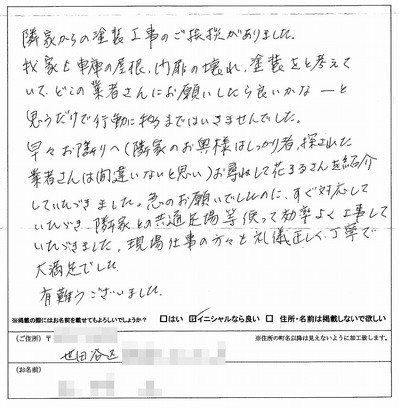 隣家からの塗装工事のご挨拶がありました。
我家も車庫の屋根、内扉の壊れ、塗装をと考えて
いて、どこの業者さんにお願いしたら良いかな―と
思うだけで行動に移るまではいきませんでした。
早々お隣りへ(隣家のお奥様はしっかり者、探された
業者さんは間違いないと思い)お尋ねして花まるさんを紹介
していただきました。急のお願いでしたのに、すぐ対応して
いただき、隣家との共通足場等使って効率よく工事して
いただきました。現場仕事の方々も礼儀正しく、丁寧で
大満足でした。
有難うございました。
※掲載の際にはお名前を載せてもよろしいでしょうか? □はい ☑イニシャルなら良い □ 住所・名前は掲載しないで欲しい
(ご住所) 〒 ※住所の町名以降は見えないように加工致します。
世田谷区
(お名前)